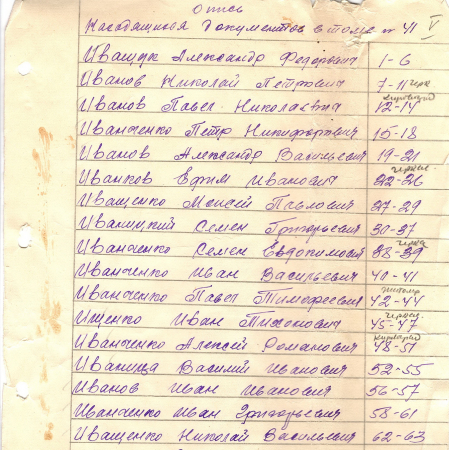 Опись
Находящихся документов в томе № 41 V
Иващук Александр Федорович 1-6
Иванов Николай Петрович 7-11 черк
Иванов Павел Николаевич 12-14 Кировоград
Иванченко Петр Никифорович 15-18
Иванов Александр Васильевич 19-21
Иванков Ефим Иванович 22-26 чернг.
Иващенко Моисей Павлович 27-29
Иваницкий Семен Григорьевич 30-37
Иванченко Семен Евдокимович 38-39 черка
Иванченко Иван Васильевич 40-41
Иванченко Павел Тимофеевич 42-44 житом
Ищенко Иван Тихонович 45-47
Иванченко Алексей Романович 48-51 Кировград
Иваница Василий Иванович 52-55
Иванов Иван Иванович 56-57
Иванченко Иван Григорьевич 58-61
Иващенко Николай Васильевич 62-63